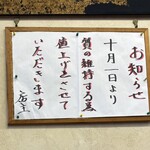 お知らせ
十月一日より
質の維持する為
値上げをさせて
いただきます
店主